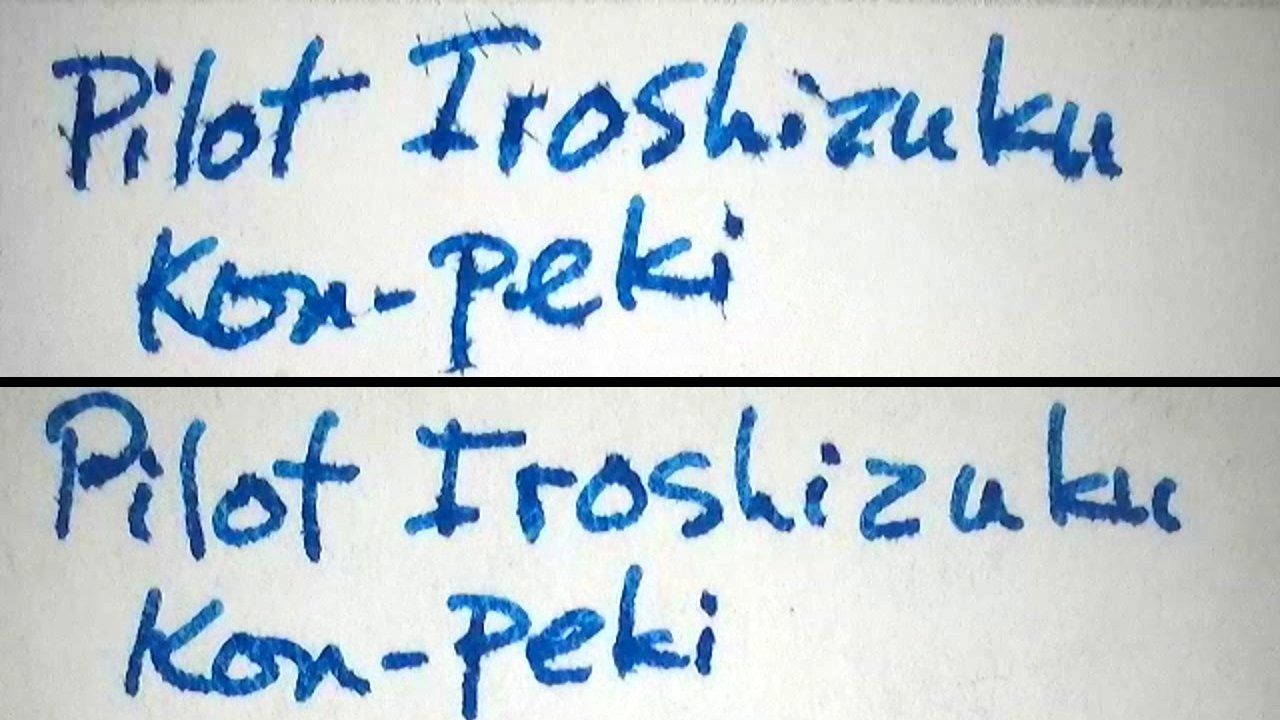 Pilot Iroshizuku
Kon-peki
Pilot Iroshizuku
Kon-peki